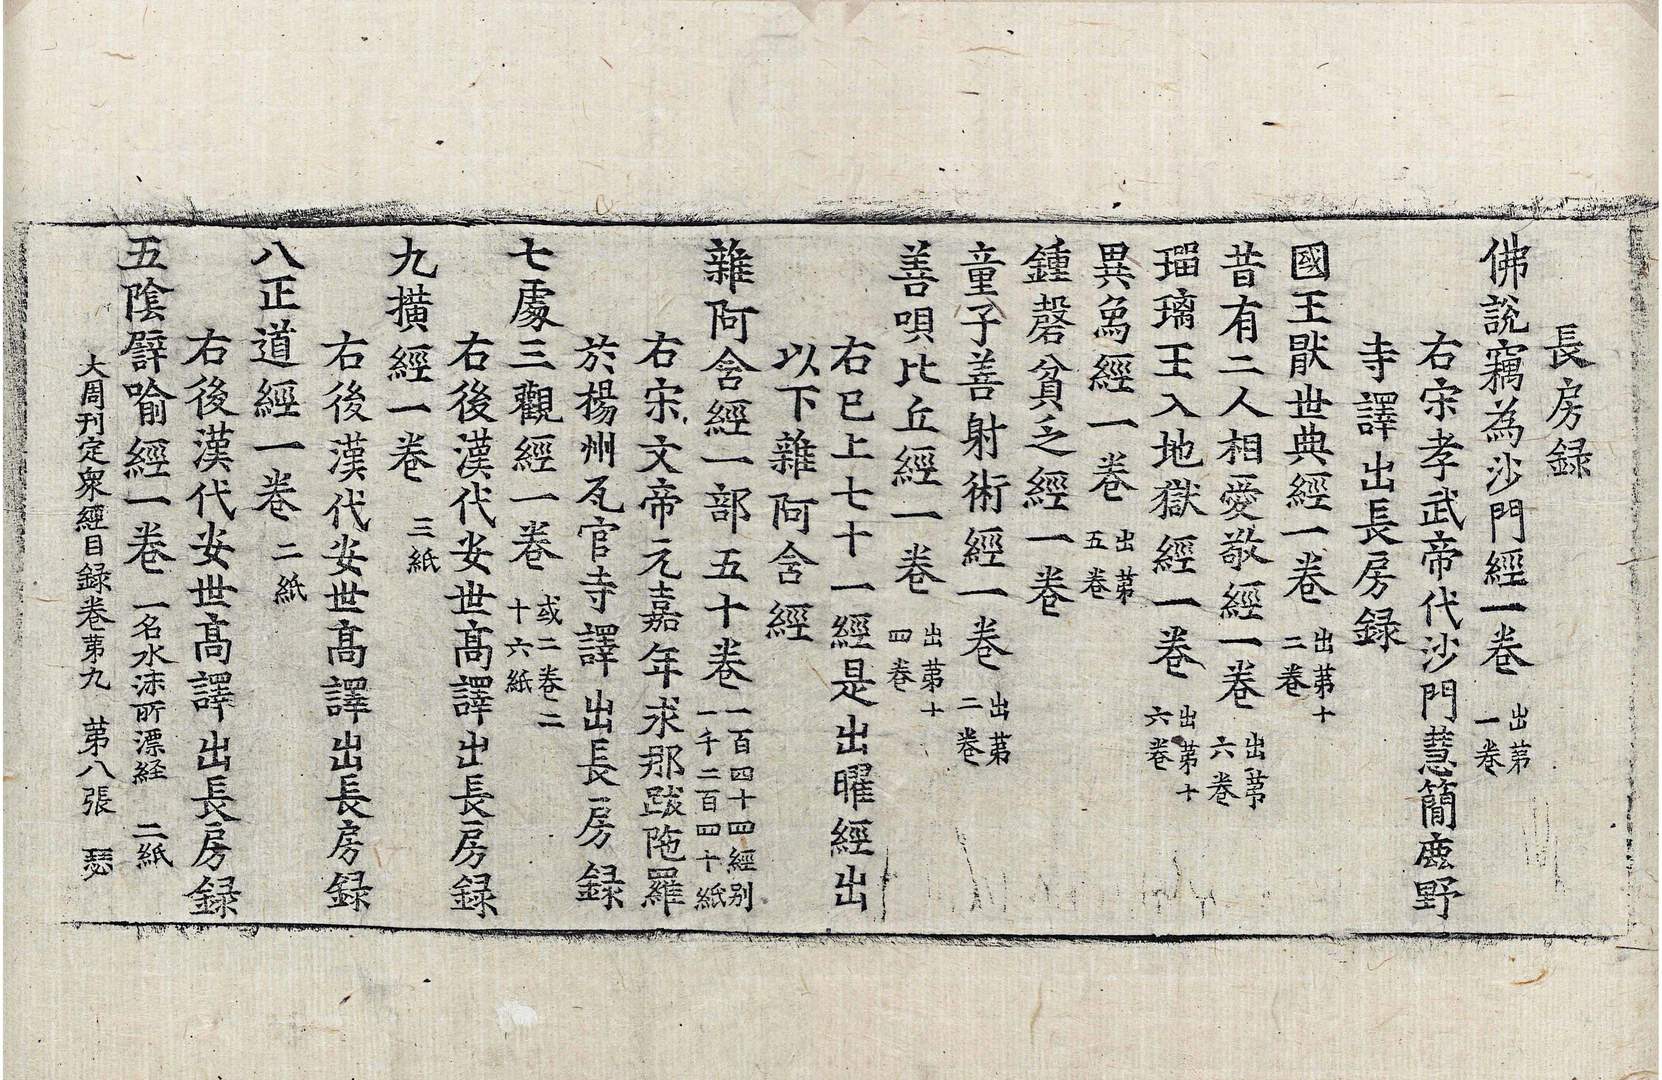 長房録
佛說竊為沙門經一卷 出苐一卷
右宋孝武帝代沙門慧簡鹿野
寺譯出長房録
國王猒世典經一卷 出苐十二卷
昔有二人相愛敬經一卷 出苐六卷
瑠璃王入地獄經一卷 出苐十六卷
異鳥經一卷 出苐五卷
鍾磬貧乏經一卷
童子善射術經一卷 出苐二卷
善唄比丘經一卷 出苐十四卷
右已上七十一經是出曜經出
以下雜阿含經
雜阿含經一部五十卷 一百四十四經别一千二百四十紙
右宋文帝元嘉年求那跋陁羅
於楊州瓦官寺譯出長房録
七處三觀經一卷 或二卷二十六紙
右後漢代安世高譯出長房録
九撗經一卷 三紙
右後漢代安世高譯出長房録
八正道經一卷 二紙
右後漢代安世高譯出長房録
五陰譬喻經一卷 一名水沫所漂経 二紙
大周刊定衆經目録卷苐九 苐八張 瑟